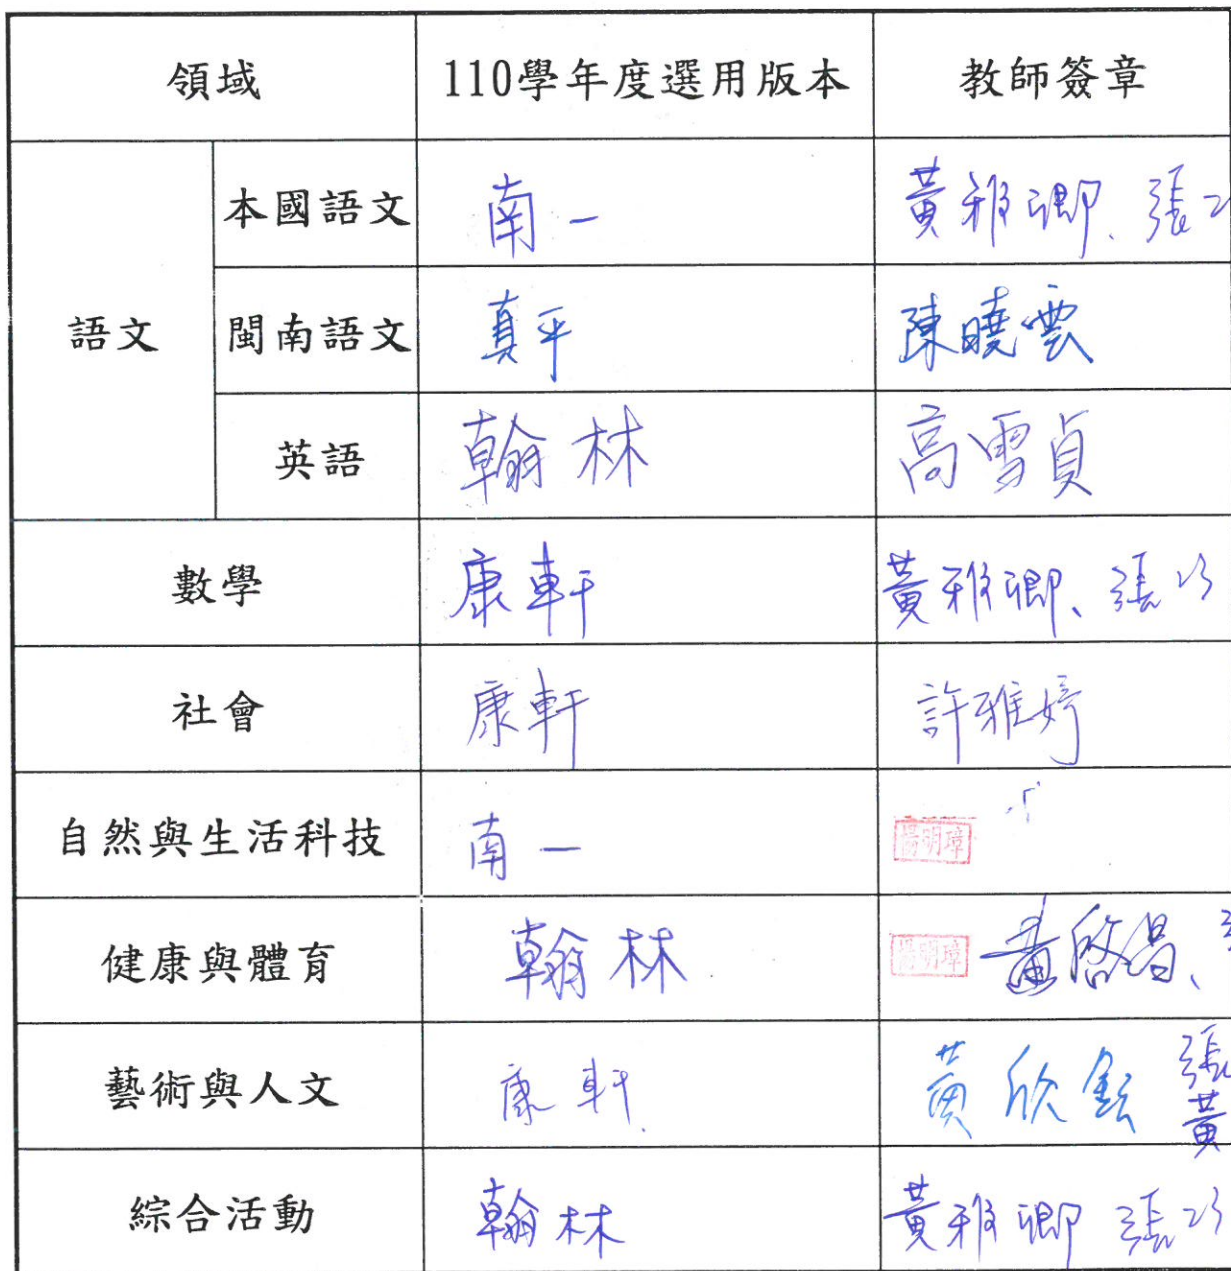 領域 110學年度選用版本 教師簽章
語文 本國語文 南一 黃雅卿、張
閩南語文 真平 陳曉雲
英語 翰林 高雪貞
數學 康軒 黃雅卿、張
社會 康軒 許雅婷
自然與生活科技 南一 楊明璋
健康與體育 翰林 楊明璋 黃啓昌、
藝術與人文 康軒 黃欣 張
黃
綜合活動 翰林 黃雅卿 張